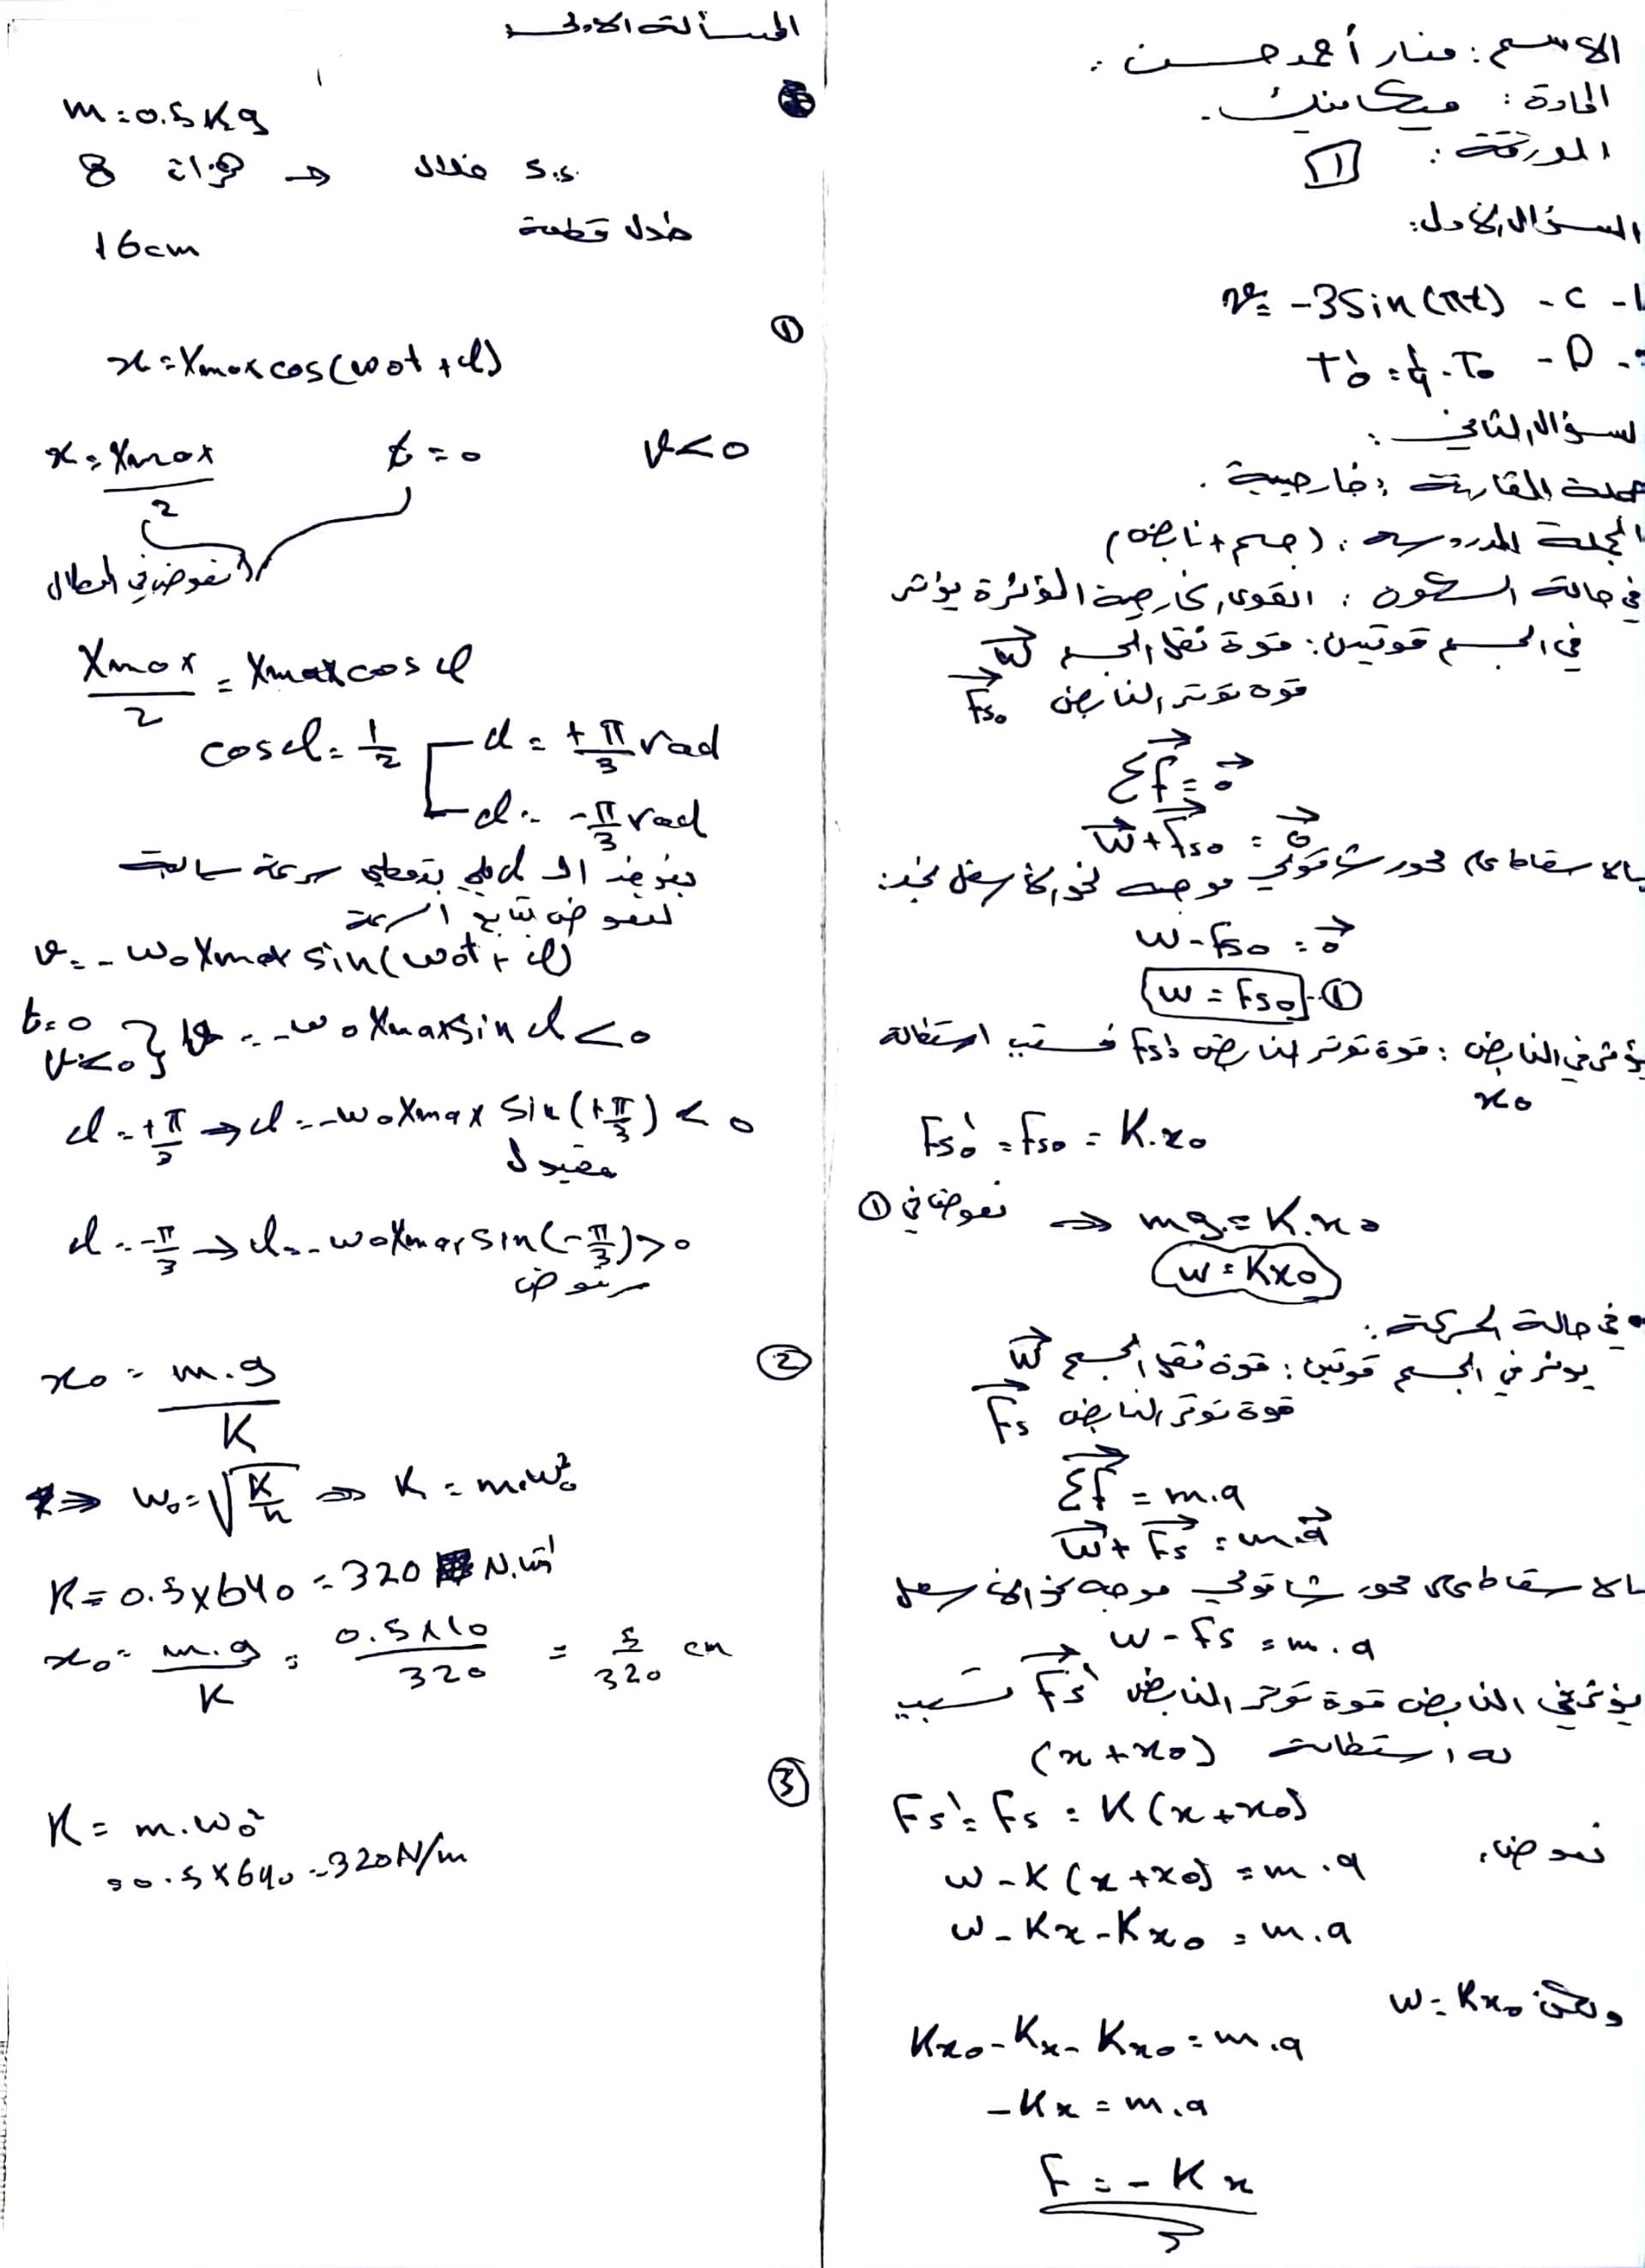 الاسم: منار أحمد حسن.
المادة: ميكانيك.
الورقة: 1
السؤال الأول:
1- C - v = -3 sin(πt)
2- D - T'o = 1/4 . To
السؤال الثاني:
جملة المقارنة: خارجية.
الجملة المدروسة: (جسم + نابض)
في حالة السكون: القوى الخارجية المؤثرة يؤثر
في الجسم قوتين: قوة ثقل الجسم W
قوة توتر النابض Fs₀
Σf = 0
W + Fs₀ = 0
بالاسقاط على محور شاقولي موجه نحو الأسفل نجد:
W - Fs₀ = 0
W = Fs₀ ..①
يؤثر في النابض: قوة توتر النابض Fs'₀ فتسبب استطالة
x₀
Fs'₀ = Fs₀ = K.x₀
نعوض في ① ⇒ mg = K.x₀
W = Kx₀
• في حالة الحركة:
يؤثر في الجسم قوتين: قوة ثقل الجسم W
قوة توتر النابض Fs
Σf = m.a
W + Fs = m.a
بالاسقاط على محور شاقولي موجه نحو الأسفل
W - Fs = m.a
يؤثر في النابض قوة توتر النابض Fs' تسبب
له استطالة (x + x₀)
Fs' = Fs = K(x + x₀)
نعوض:
W - K(x + x₀) = m.a
W - Kx - Kx₀ = m.a
ولكن: W = Kx₀
Kx₀ - Kx - Kx₀ = m.a
-Kx = m.a
F = -Kx
المسألة الأولى
m = 0.5 Kg
8 هزات → خلال 5.s
16cm طول قطعة
①
x = Xmax cos(ω₀t + φ)
x = Xmax/2 t = 0 v < 0
نعوض في المطال
Xmax/2 = Xmax cos φ
cos φ = 1/2 φ = +π/3 rad
φ = -π/3 rad
بتعطي سرعة سالبة
لنعوض بتابع السرعة
v = -ω₀ Xmax sin(ω₀t + φ)
t = 0
v < 0 } v = -ω₀ Xmax sin φ < 0
φ = +π/3 → φ = -ω₀ Xmax sin(+π/3) < 0
مقبول
φ = -π/3 → φ = -ω₀ Xmax sin(-π/3) > 0
مرفوض
②
x₀ = m.g/K
⇒ ω₀ = √K/m ⇒ K = m.ω₀²
K = 0.5 × 640 = 320 N.m⁻¹
x₀ = m.g/K = 0.5×10/320 = 5/320 cm
③
K = m.ω₀²
= 0.5 × 640 = 320 N/m